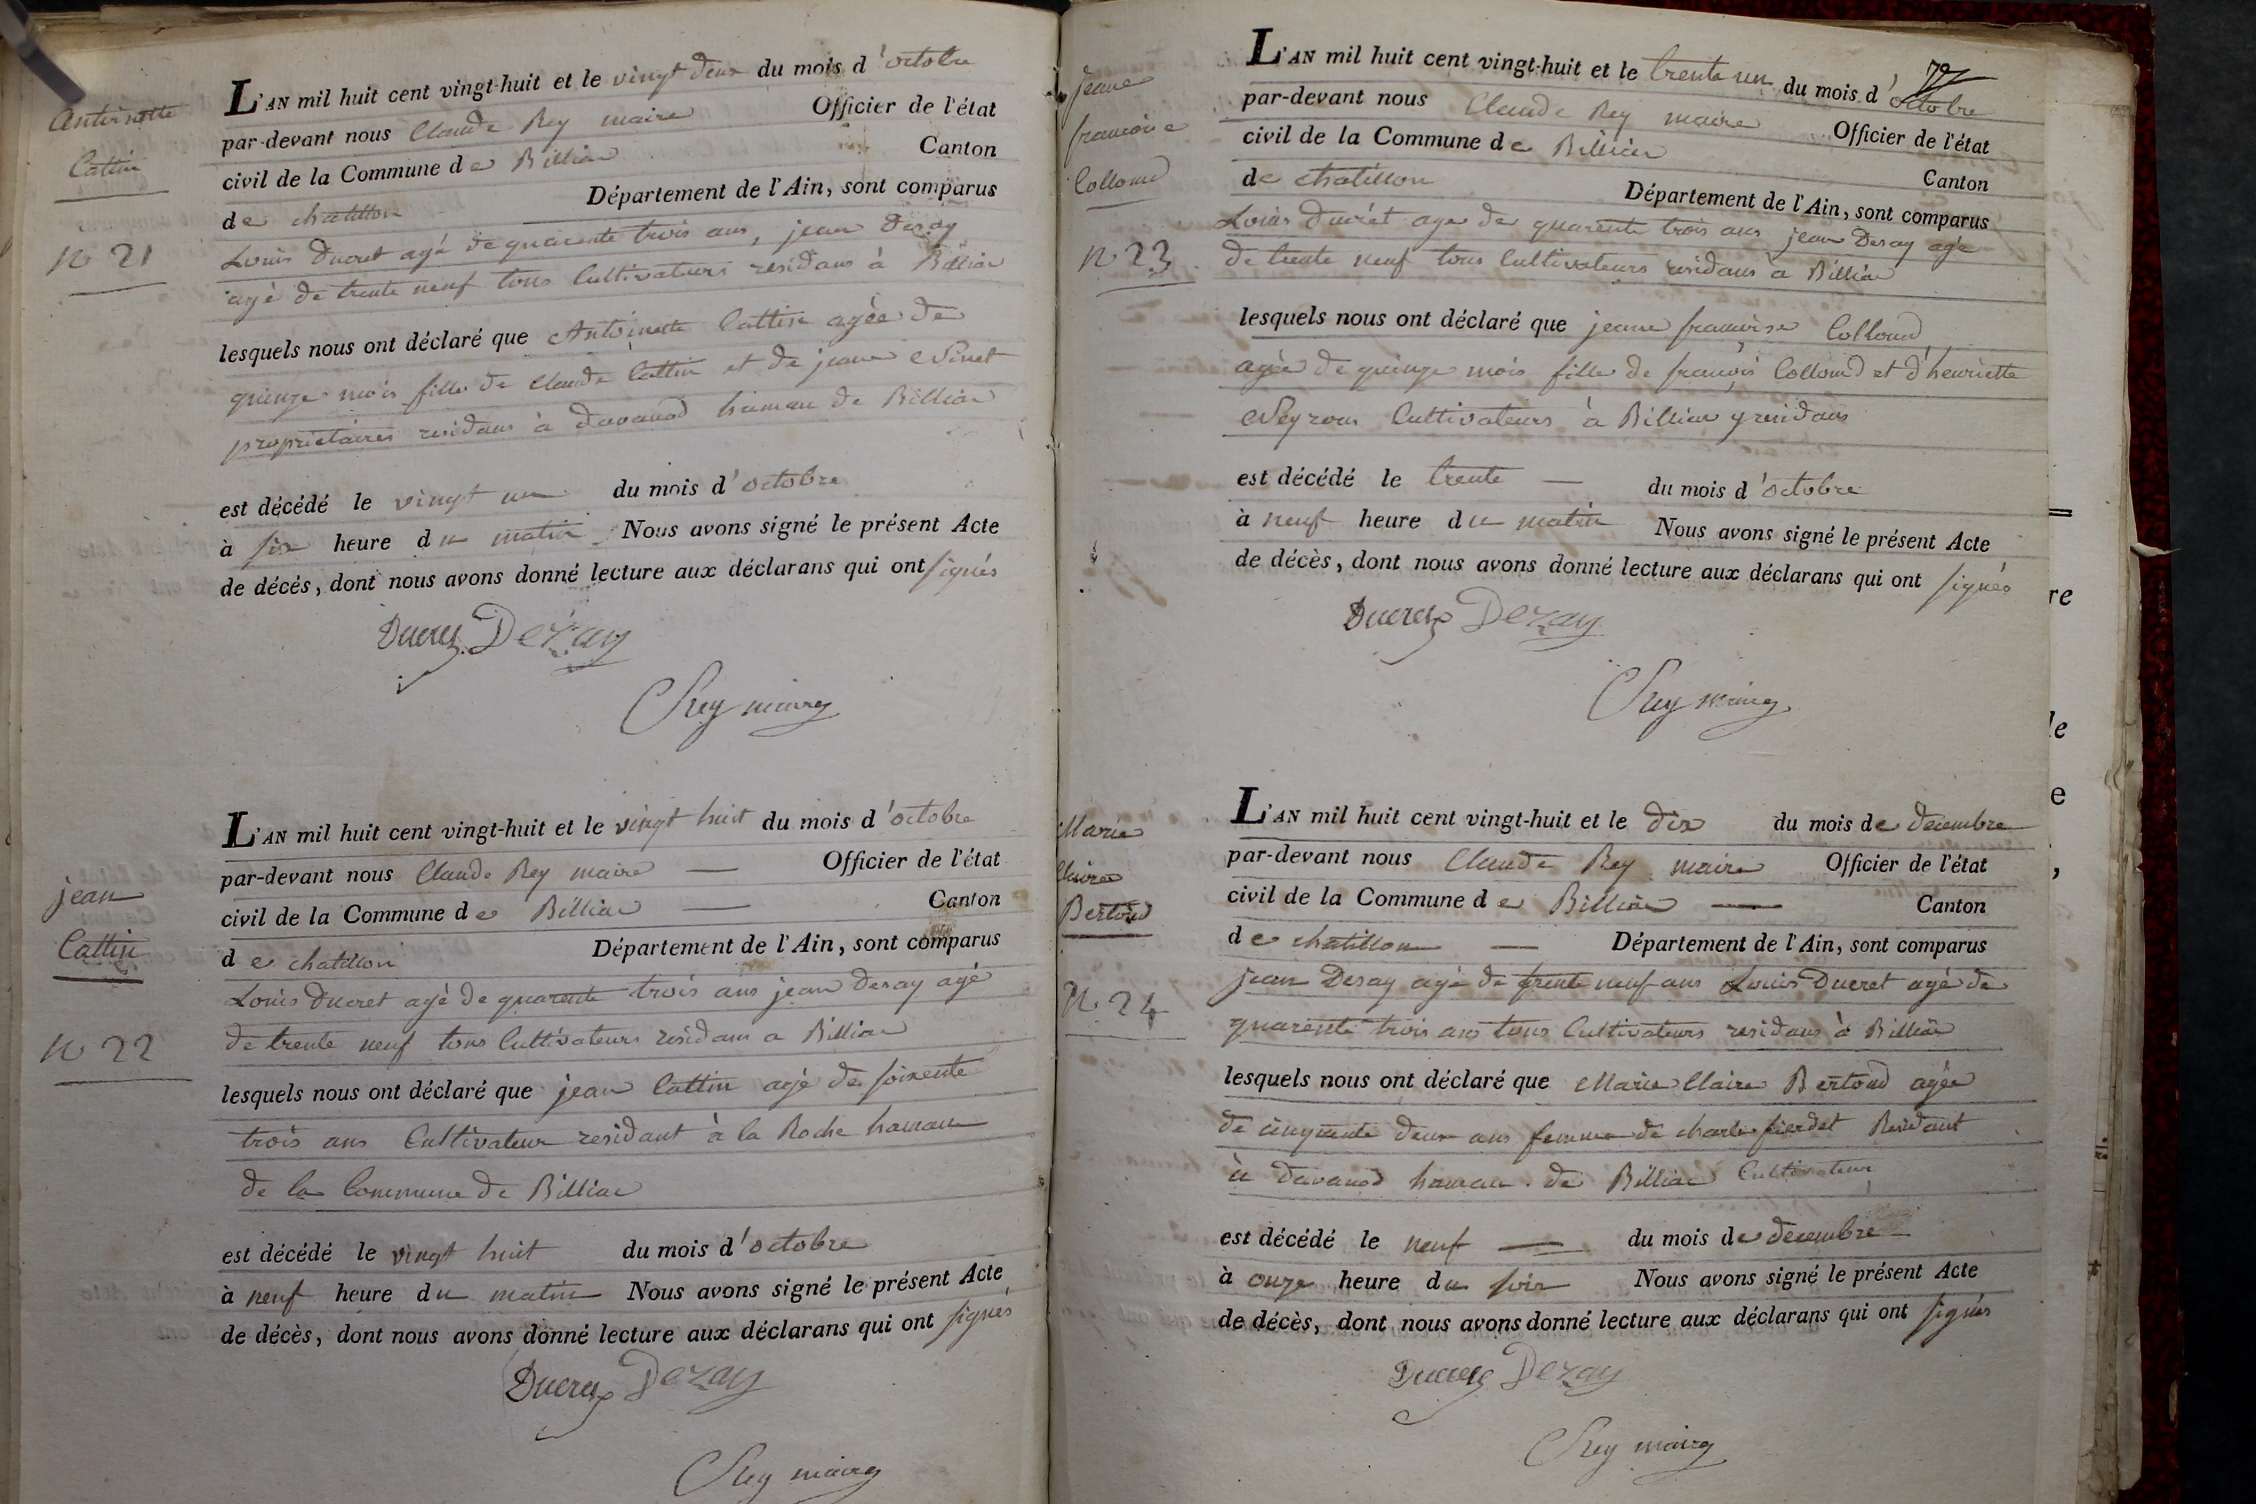 Antoinette
Cattin
N 21
L'AN mil huit cent vingt-huit et le vingt deux du mois d'octobre
par-devant nous Claude Rey maire Officier de l'état
civil de la Commune de Billiac Canton
de chatillon Département de l'Ain, sont comparus
Louis Ducret agé de quarente trois ans, jean Desay
agé de trente neuf tous Cultivateurs residans à Billiac
lesquels nous ont déclaré que Antoinette Cattin agée de
quinze mois fille de Claude Cattin et de jeane
proprietaires residans à davanod hamau de Billiac
est décédé le vingt un du mois d'octobre
à six heure du matin Nous avons signé le présent Acte
de décès, dont nous avons donné lecture aux déclarans qui ont signés
Ducret Dezay
CRey maire
jean
Cattin
N 22
L'AN mil huit cent vingt-huit et le vingt huit du mois d'octobre
par-devant nous Claude Rey maire — Officier de l'état
civil de la Commune de Billiac — Canton
de chatillon Département de l'Ain, sont comparus
Louis Ducret agé de quarente trois ans jean Desay agé
de trente neuf tous Cultivateurs residans a Billiac
lesquels nous ont déclaré que jean Cattin agé de soixente
trois ans Cultivateur residant à la Roche hamau
de la Commune de Billiac
est décédé le vingt huit du mois d'octobre
à neuf heure du matin Nous avons signé le présent Acte
de décès, dont nous avons donné lecture aux déclarans qui ont signés
Ducret Dezay
CRey maire
Jeane
francoise
Collomd
N 23
L'AN mil huit cent vingt-huit et le trente un du mois d'octobre
par-devant nous Claude Rey maire Officier de l'état
civil de la Commune de Billiac Canton
de chatillon Département de l'Ain, sont comparus
Louis Ducret age de quarente trois ans jean Desay agé
de trente neuf tous Cultivateurs residans à Billiac
lesquels nous ont déclaré que jeane francoise Collomd
agée de quinze mois fille de francois Collomd et d'henriette
Neyroux Cultivateurs à Billiac y residans
est décédé le trente — du mois d'octobre
à neuf heure du matin Nous avons signé le présent Acte
de décès, dont nous avons donné lecture aux déclarans qui ont signés
Ducret Dezay
CRey maire
Marie
Claire
Bertoud
N 24
L'AN mil huit cent vingt-huit et le dix du mois de decembre
par-devant nous Claude Rey maire Officier de l'état
civil de la Commune de Billiac — Canton
de chatillon — Département de l'Ain, sont comparus
jean Desay agé de trente neuf ans Louis Ducret agé de
quarente trois ans tous Cultivateurs residans à Billiac
lesquels nous ont déclaré que Marie Claire Bertoud agée
de cinquente deux ans femme de charle fierdet Residant
à davanod hamau de Billiac Cultivateur
est décédé le neuf — du mois de decembre
à onze heure du soir Nous avons signé le présent Acte
de décès, dont nous avons donné lecture aux déclarans qui ont signés
Ducret Dezay
CRey maire
re
le
e
,